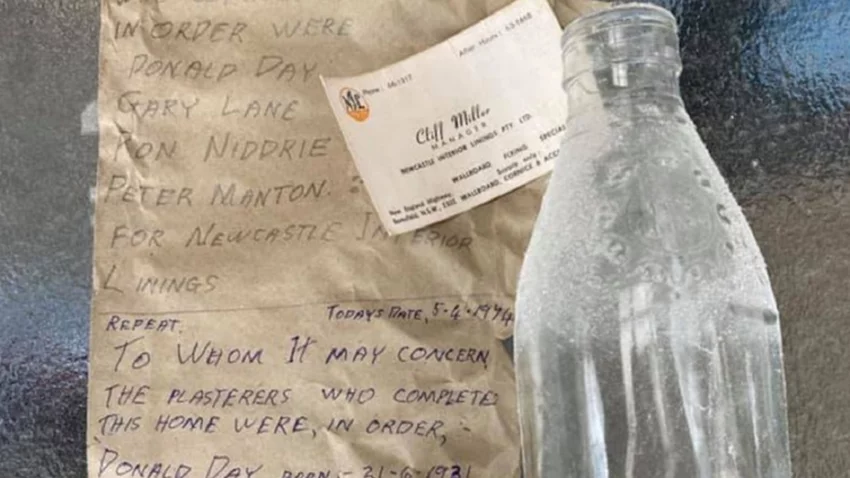 IN ORDER WERE
DONALD DAY
GARY LANE
RON NIDDRIE
PETER MANTON.
FOR NEWCASTLE INTERIOR
LININGS
REPEAT.
TODAYS DATE, 5-4-1974
TO WHOM IT MAY CONCERN
THE PLASTERERS WHO COMPLETED
THIS HOME WERE, IN ORDER, :-
DONALD DAY BORN :- 21-6-1931
Phone:
After Hours:
Cliff Miller
MANAGER
NEWCASTLE INTERIOR LININGS PTY. LTD.
WALLBOARD FIXING
New England Highway,
N.S.W.,
WALLBOARD, CORNICE &